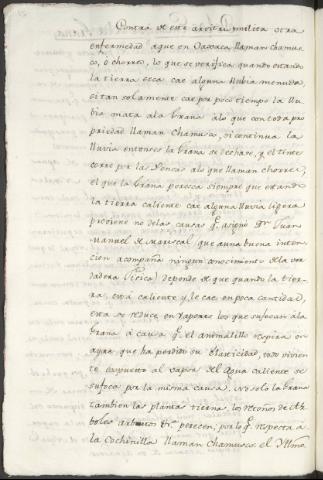 Contra de este arbitrio milita otra
enfermedad aque en Oaxaca llaman chamus-
co, ó chorreo, lo que se verifica quando estando
la tierra seca cae alguna llubia menuda,
si tan solamente cae por poco tiempo la llu-
bia mata ála grana alo que con toda pro
priedad llaman Chamusco, si continua la
lluvia entonces la grana se deshace, y el tinte
corre por las Pencas alo que llaman chorreo;
el que la grana peresca siempre que estando
la tierra caliente cae alguna lluvia ligera
proviene no delas causas q.e asigno D.n Juan
Manuel de Mariscal que auna buena inten-
cion acompaña ningun conocimiento dela ver
dadera fisica) depende de que quando la tier-
ra, está caliente y le cae en poca cantidad,
esta se reduce en vapores los que sufocan ála
grana á causa q.e el animalillo respira un
ayre que ha perdido su elasticidad, todo vivien
te expuesto al vapor del Agua caliente se
sufoca por la misma causa, no solo la grana
tambien las plantas tiernas, los retoños de Ar
boles arbustos &.a perecen; por lo q.e respecta á
la Cochinilla llaman Chamusco, el Yllmo